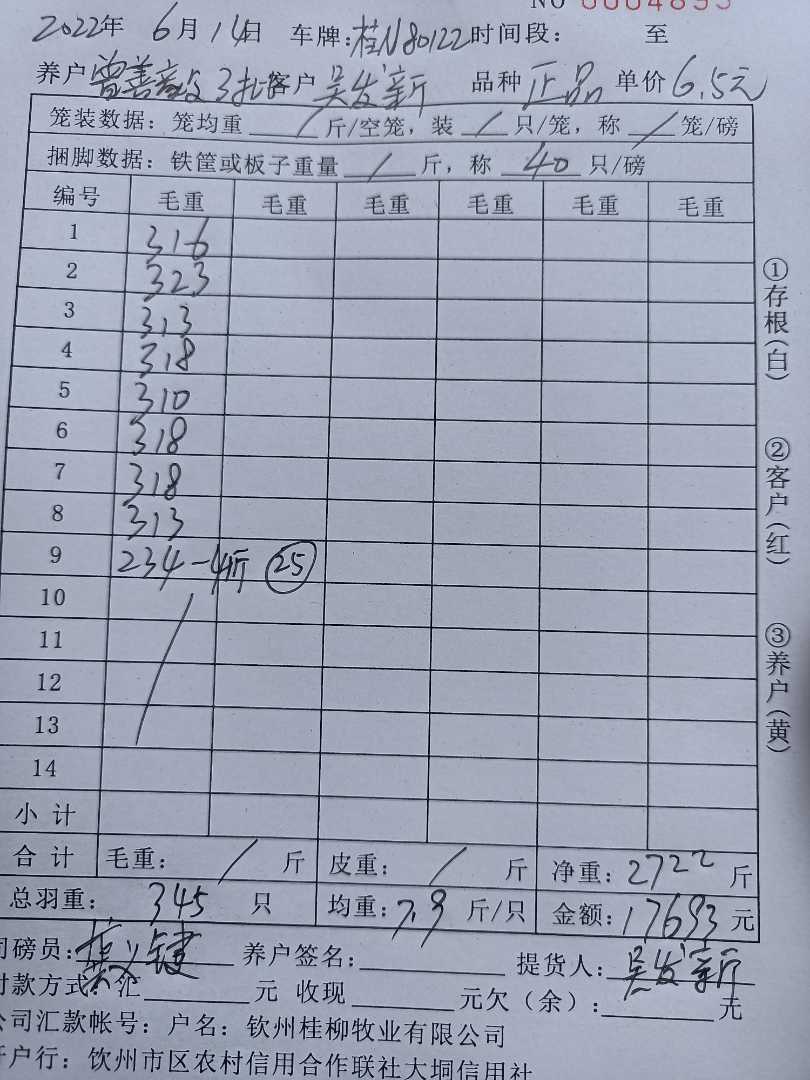 NO 0004895
2022年 6月 14日 车牌:桂N80122时间段: 至
养户 曾善 3批 客户 吴发新 品种 正品 单价 6.5元
笼装数据: 笼均重 / 斤/空笼, 装 / 只/笼, 称 / 笼/磅
捆脚数据: 铁筐或板子重量 / 斤, 称 40 只/磅
编号 毛重 毛重 毛重 毛重 毛重 毛重
1 316
2 323
3 313
4 318
5 310
6 318
7 318
8 313
9 234-4斤 25
10
11
12
13
14
小计
合计 毛重: / 斤 皮重: / 斤 净重: 2722 斤
总羽重: 345 只 均重: 7.9 斤/只 金额: 17693 元
司磅员: 养户签名: 提货人: 吴发新
付款方式: 汇 元 收现 元欠(余): 元
公司汇款帐号: 户名: 钦州桂柳牧业有限公司
开户行: 钦州市区农村信用合作联社大垌信用社
①存根(白)
②客户(红)
③养户(黄)